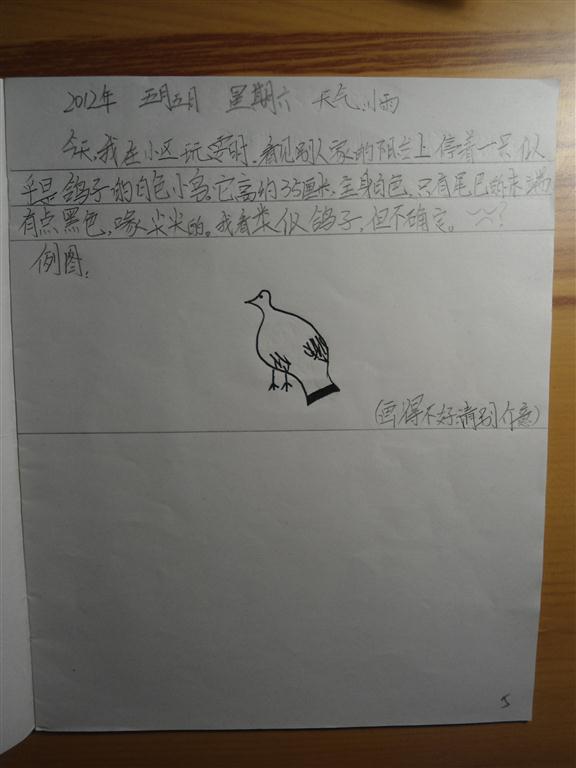 2012年 五月五月 星期六 天气:小雨
今天,我在小区玩耍时,看见别人家的阳台上停着一只似
乎是鸽子的白色小鸟,它高约35厘米,全身白色,只有尾巴的末端
有点黑色,喙尖尖的。我看类似鸽子,但不确定。
例图:
(画得不好,请别介意)
5